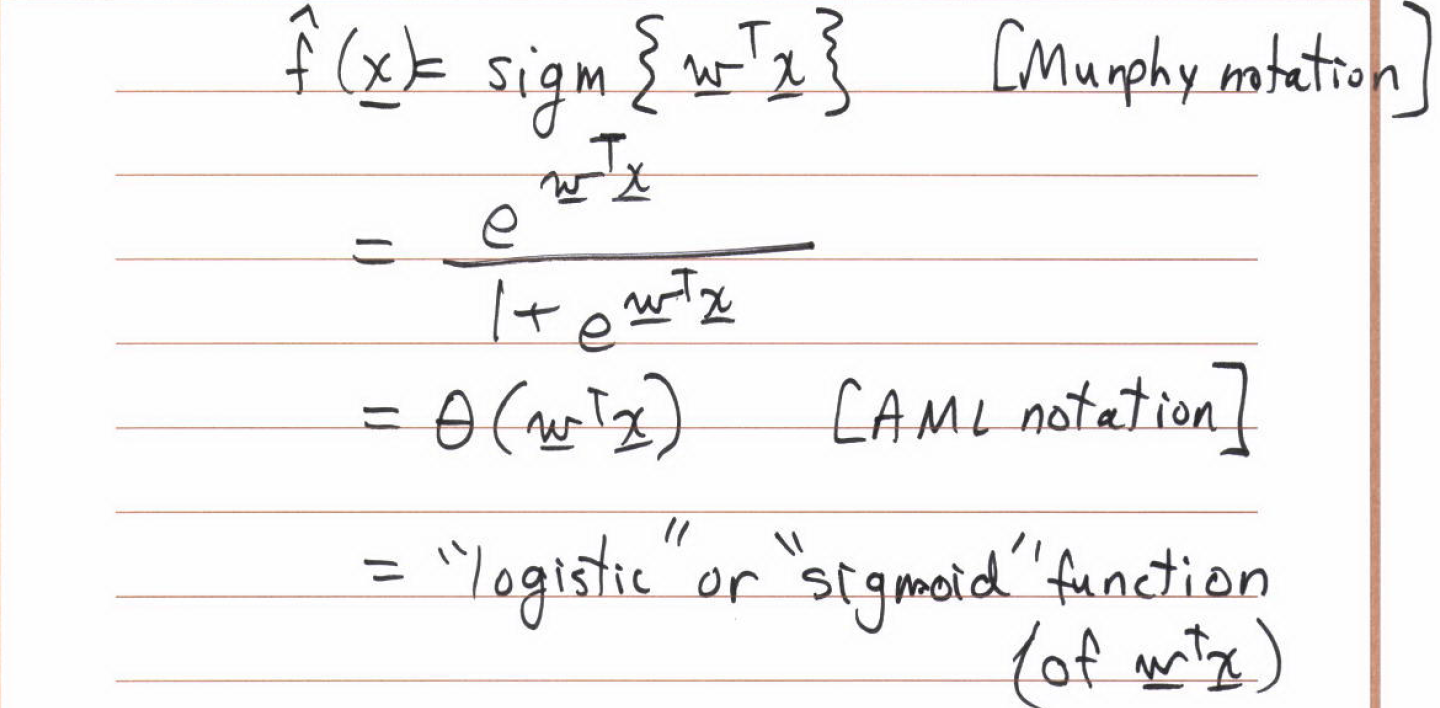 f̂(x̲) = sigm{w̲ᵀx̲} [Murphy notation]
= e^{w̲ᵀx̲} / (1 + e^{w̲ᵀx̲})
= θ(w̲ᵀx̲) [AML notation]
= "logistic" or "sigmoid" function
(of w̲ᵀx̲)